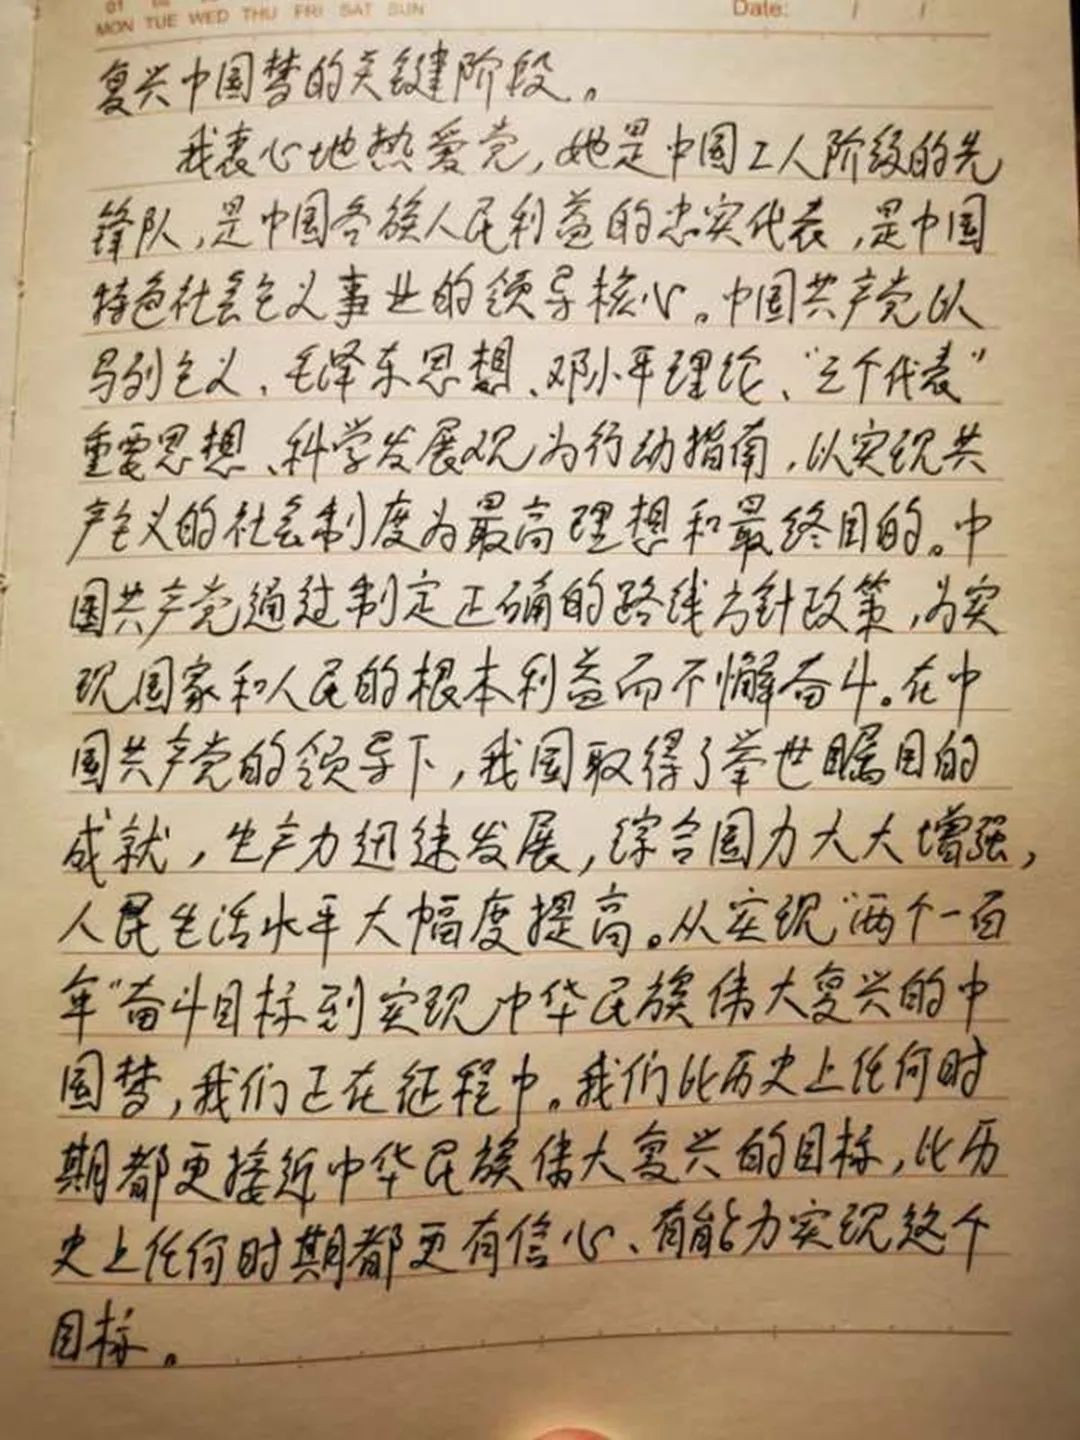 MON TUE WED THU FRI SAT SUN
Date: / /
复兴中国梦的关键阶段。
我衷心地热爱党，她是中国工人阶级的先
锋队，是中国各族人民利益的忠实代表，是中国
特色社会主义事业的领导核心。中国共产党以
马列主义、毛泽东思想、邓小平理论、“三个代表”
重要思想、科学发展观为行动指南，以实现共
产主义的社会制度为最高理想和最终目的。中
国共产党通过制定正确的路线方针政策，为实
现国家和人民的根本利益而不懈奋斗。在中
国共产党的领导下，我国取得了举世瞩目的
成就，生产力迅速发展，综合国力大大增强，
人民生活水平大幅度提高。从实现“两个一百
年”奋斗目标到实现中华民族伟大复兴的中
国梦，我们正在征程中。我们比历史上任何时
期都更接近中华民族伟大复兴的目标，比历
史上任何时期都更有信心、有能力实现这个
目标。